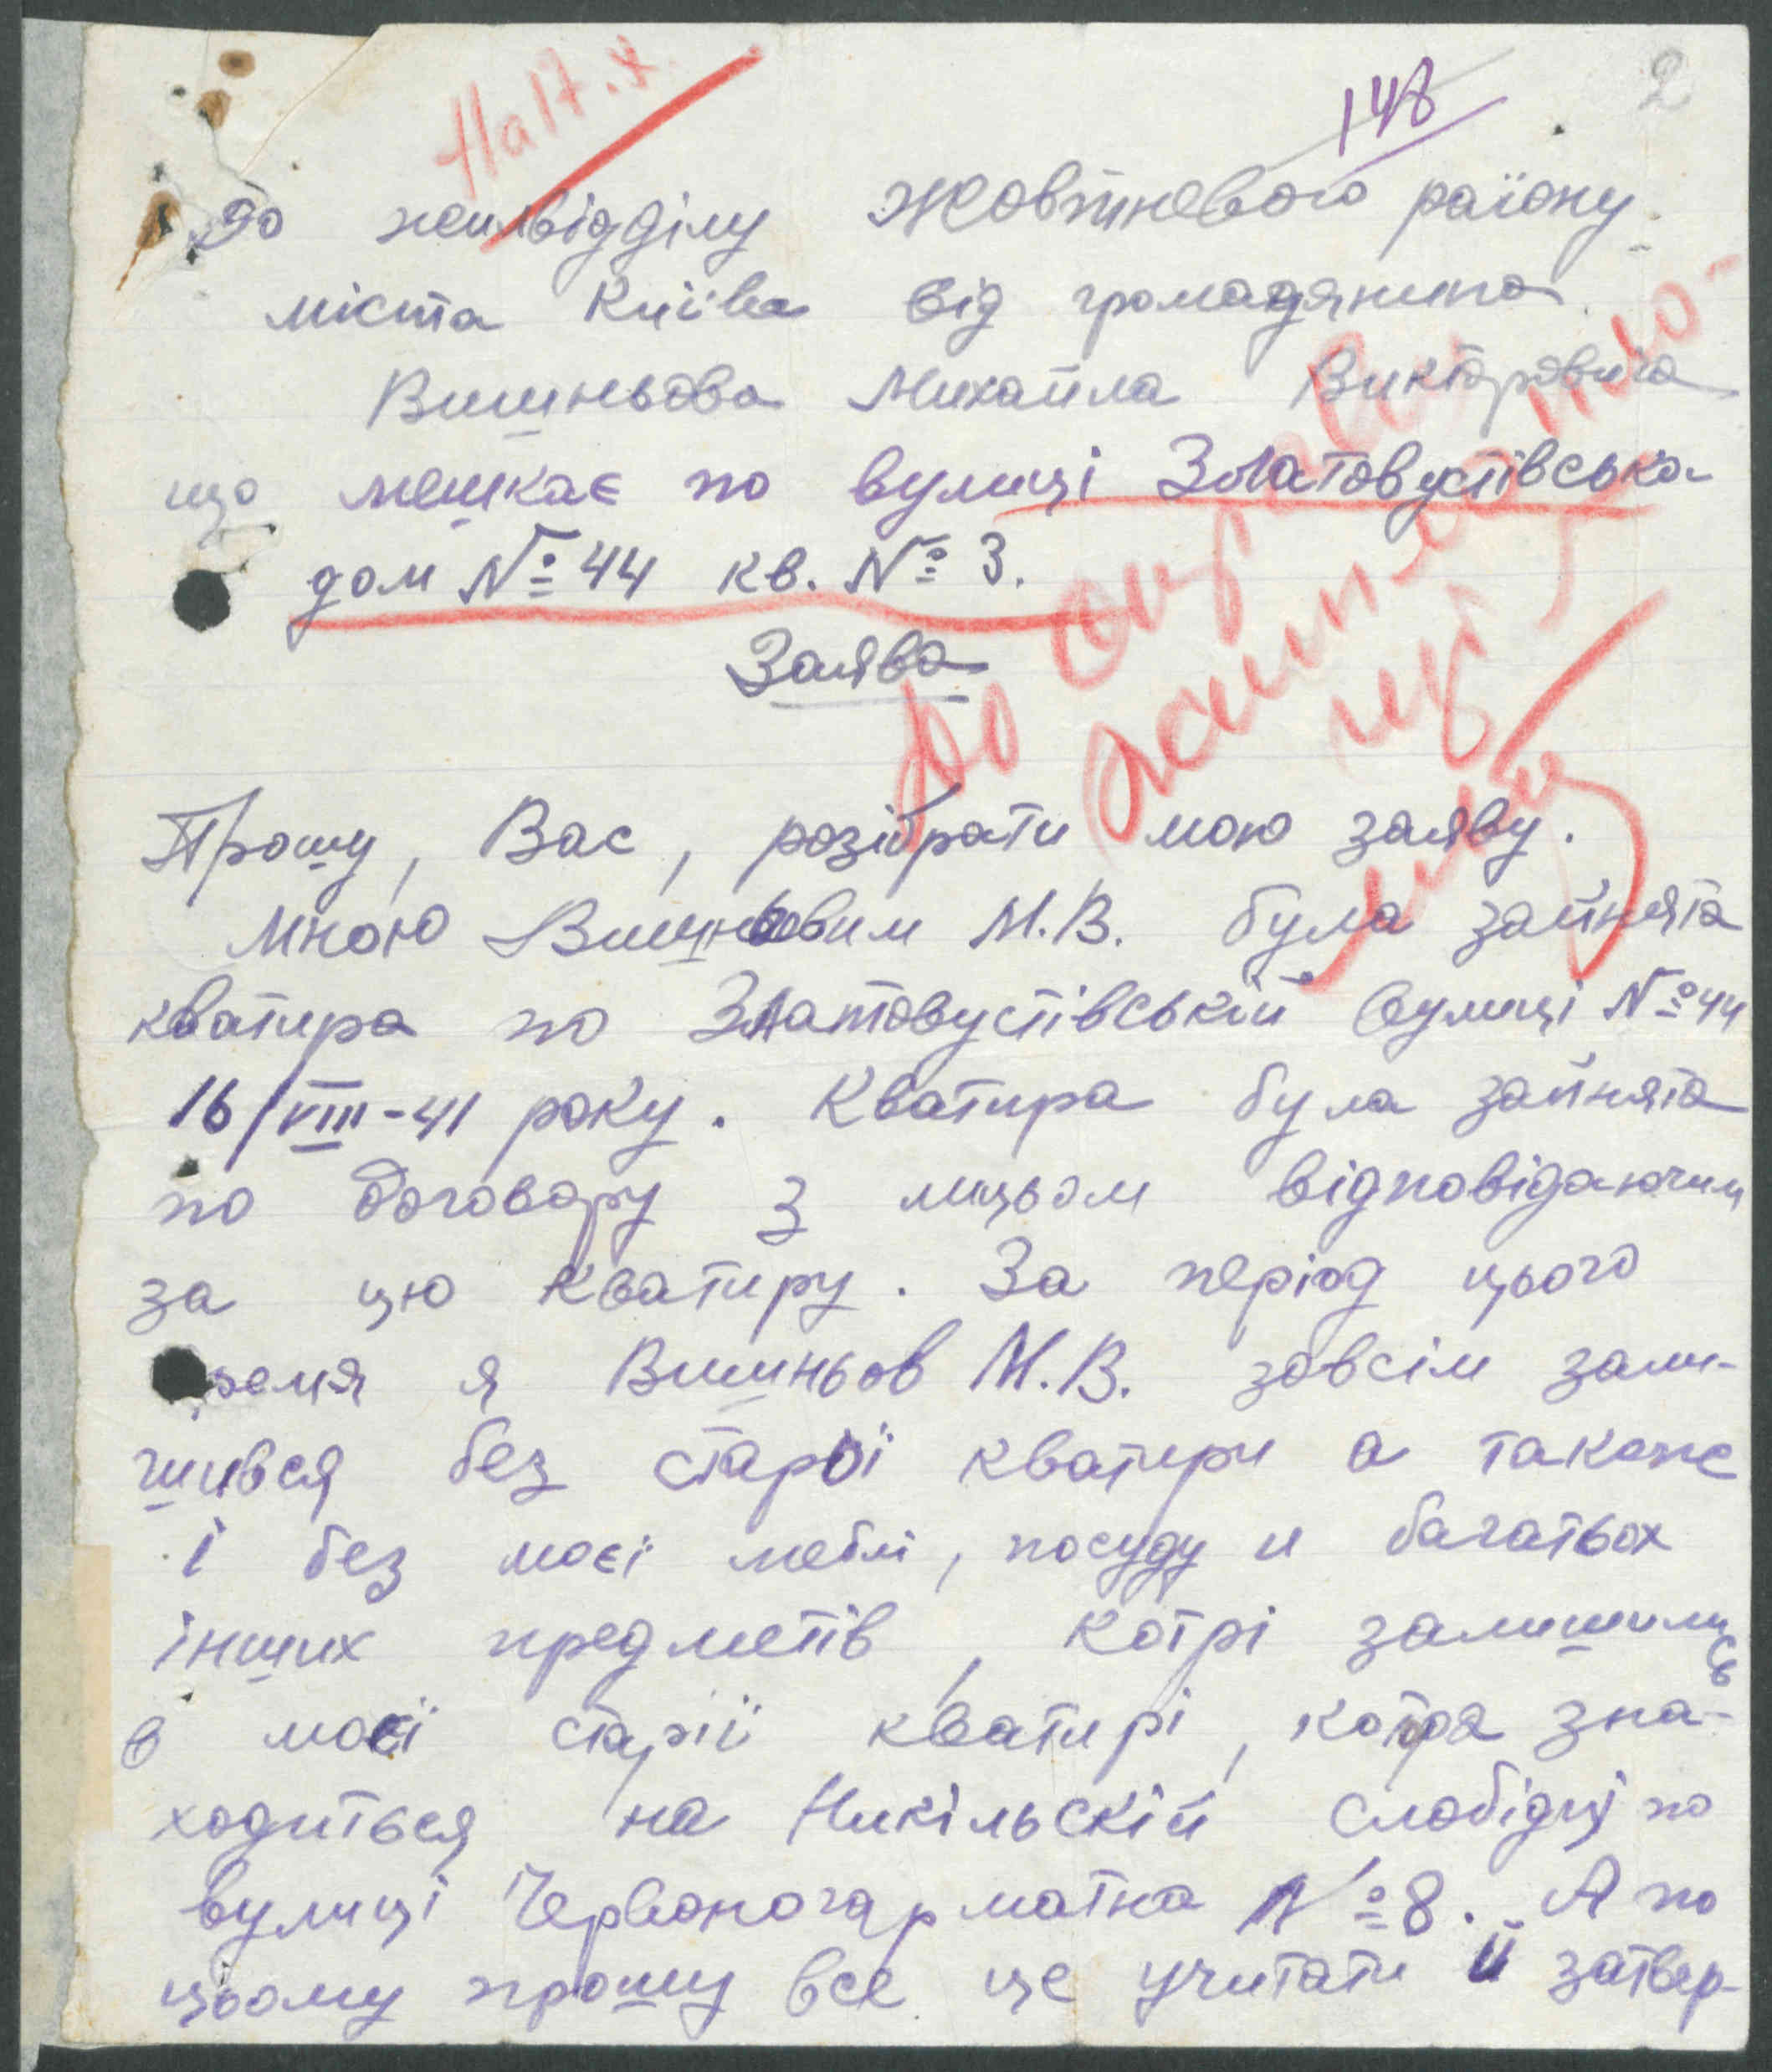 На 17.X.
148
2
До жилвідділу Жовтневого раїону
міста Київа від громадянина
Вишньова Михаила Викторовича
що мешкає по вулиці Златовустівська
дом № 44 кв. № 3.
Заява
До
Прошу, Вас, розібрати мою заяву.
Мною Вишньовим М.В. була зайнята
кватира по Златовустівській вулиці № 44
16/VIII-41 року. Кватира була зайнята
по договору з лицьом відповідаючим
за цю кватиру. За період цього
время я Вишньов М.В. зовсім зали-
шився без старої кватири а также
і без моєї меблі, посуду и багатьох
інших предметів, котрі залишились
в моєї старії кватирі, котра зна-
ходиться на Никільскій слобідці по
вулиці Червоногарматна № 8. А по
цьому прошу все це учитати й затвер-